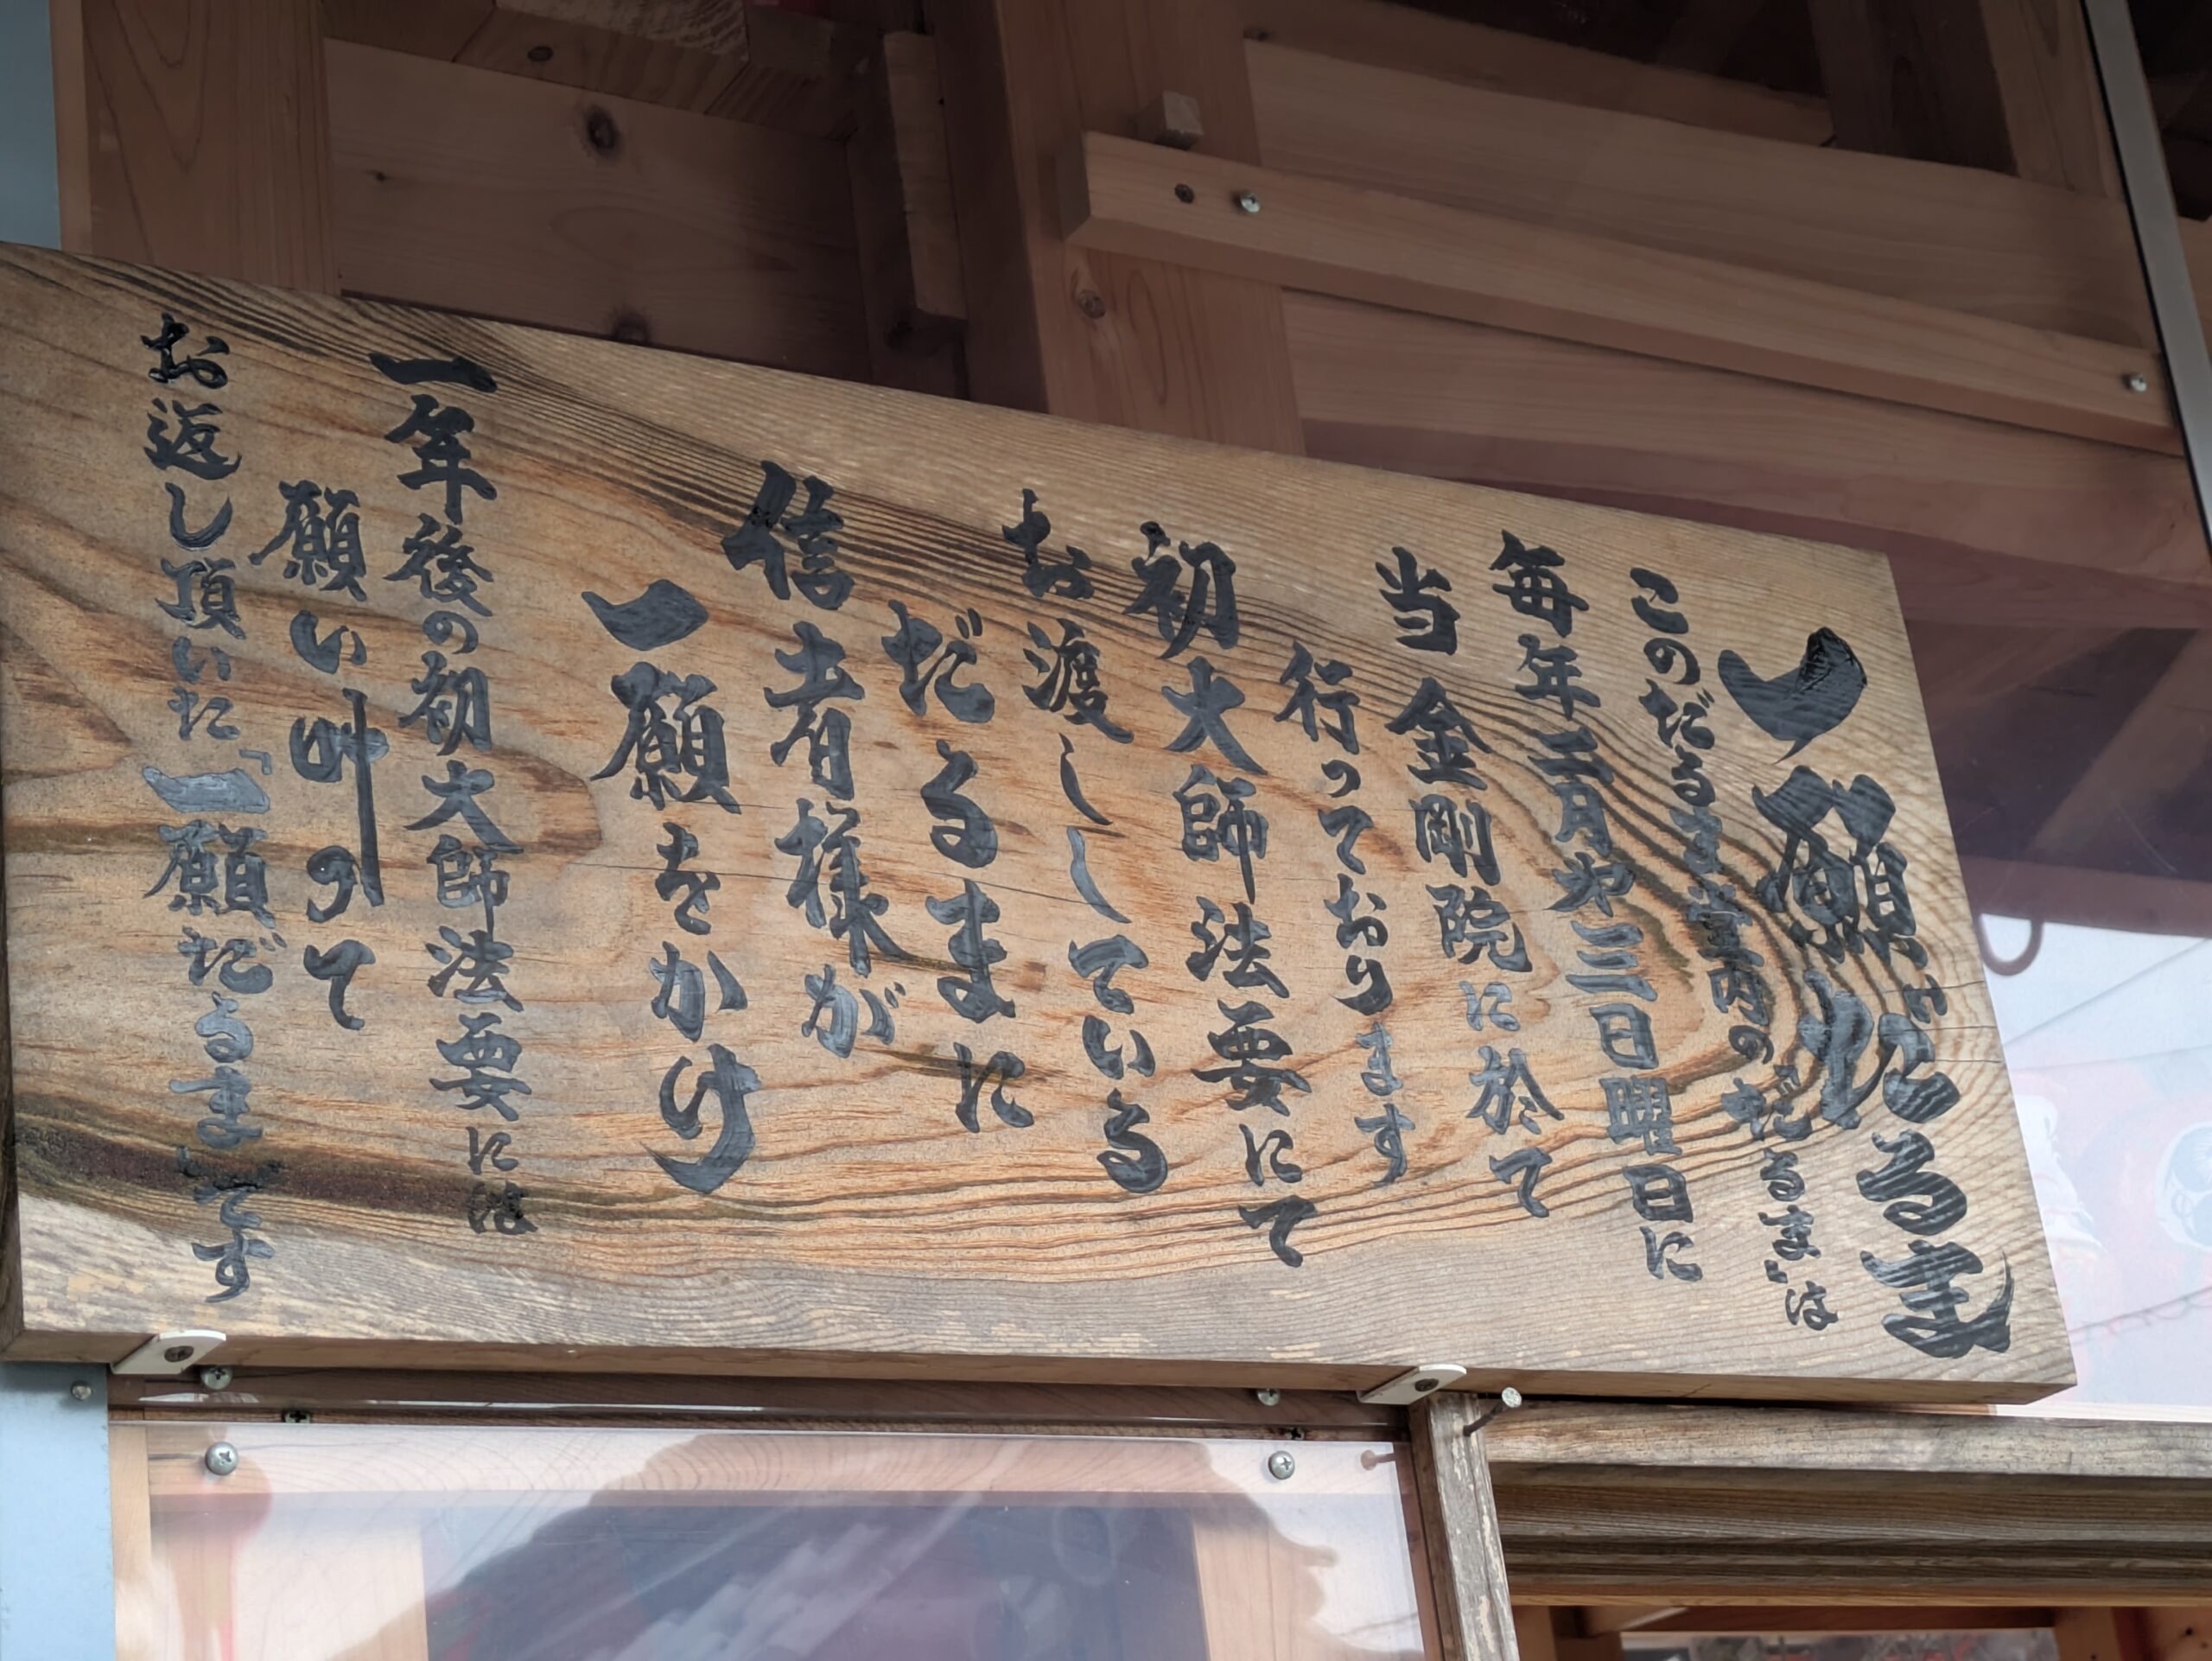 一願だるま
このだるま堂内の“だるま”は
毎年二月㐧三日曜日に
当金剛院に於て
行っております
初大師法要にて
お渡ししている
だるまに
信者様が
一願をかけ
一年後の初大師法要には
願い叶って
お返し頂いた「一願だるま」です